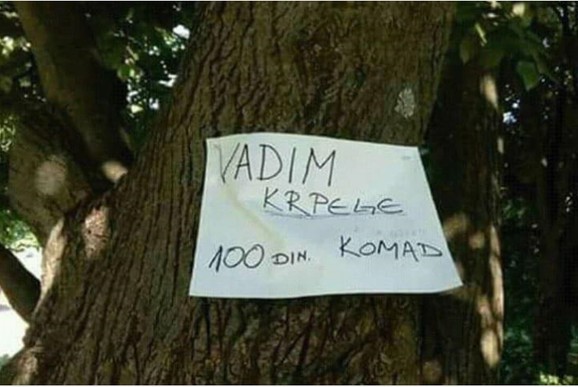 VADIM
KRPELE
100 DIN. KOMAD